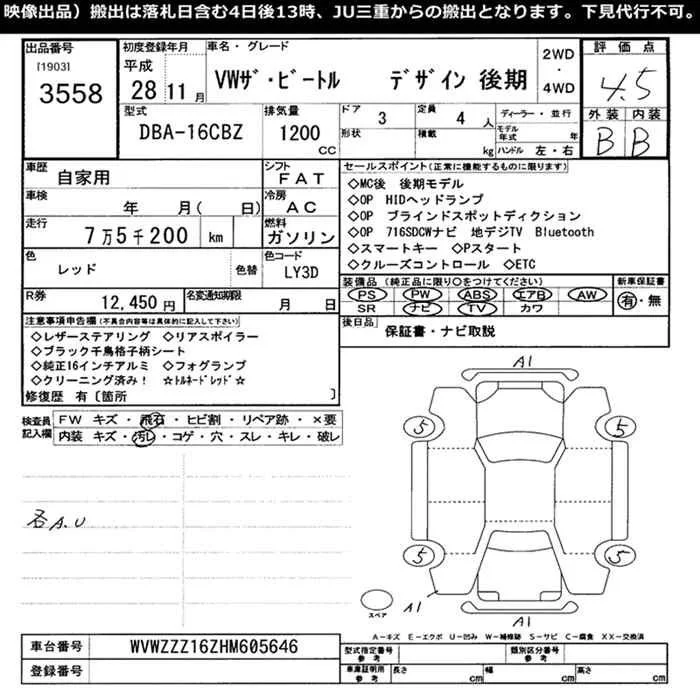 映像出品）搬出は落札日含む4日後13時、JU三重からの搬出となります。下見代行不可。
出品番号
[1903]
3558
初度登録年月
平成
28 11 月
車名・グレード
VWザ・ビートル デザイン 後期
2WD
・
4WD
評価点
4.5
型式
DBA-16CBZ
排気量
1200
CC
ドア 3
形状
定員 4 人
積載 kg
ディーラー・並行
モデル年式 年
ハンドル 左・右
外装 内装
B B
車歴
自家用
シフト
FAT
車検
年 月( 日)
冷房
AC
走行
7万5千200 km
燃料
ガソリン
色
レッド
色替
色コード
LY3D
R券
12,450円
名変通知期限
月 日
セールスポイント(正常に機能するものに限ります)
◇MC後 後期モデル
◇OP HIDヘッドランプ
◇OP ブラインドスポットディクション
◇OP 716SDCWナビ 地デジTV Bluetooth
◇スマートキー ◇Pスタート
◇クルーズコントロール ◇ETC
装備品(純正品に限り○をつけてください)
PS PW ABS エアB AW
SR ナビ TV カワ
新車保証書
有・無
後日品
保証書・ナビ取説
注意事項申告欄(不具合内容等は具体的に記入して下さい)
◇レザーステアリング ◇リアスポイラー
◇ブラック千鳥格子柄シート
◇純正16インチアルミ ◇フォグランプ
◇クリーニング済み！ ☆トルネードレッド☆
修復歴 有〔箇所 〕
検査員記入欄
FW キズ・飛石・ヒビ割・リペア跡・×要
内装 キズ・汚レ・コゲ・穴・スレ・キレ・破レ
各A.U
A1
5 5
5 5
A1
A1
スペア
A－キズ E－エクボ U－凹み W－補修跡 S－サビ C－腐食 XX－交換済
車台番号
WVWZZZ16ZHM605646
登録番号
型式指定番号
参考
類別区分番号
参考
車庫証明用
参考
長さ cm
幅 cm
高さ cm